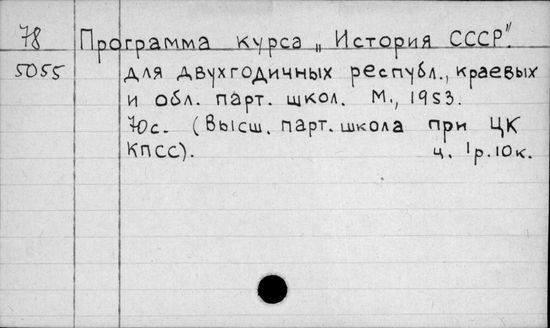 78 Программа курса „История СССР".
5055 для двухгодичных республ., краевых
и обл. парт. школ. М., 1953.
70с. (Высш. парт. школа при ЦК
КПСС). ц. 1р.10к.